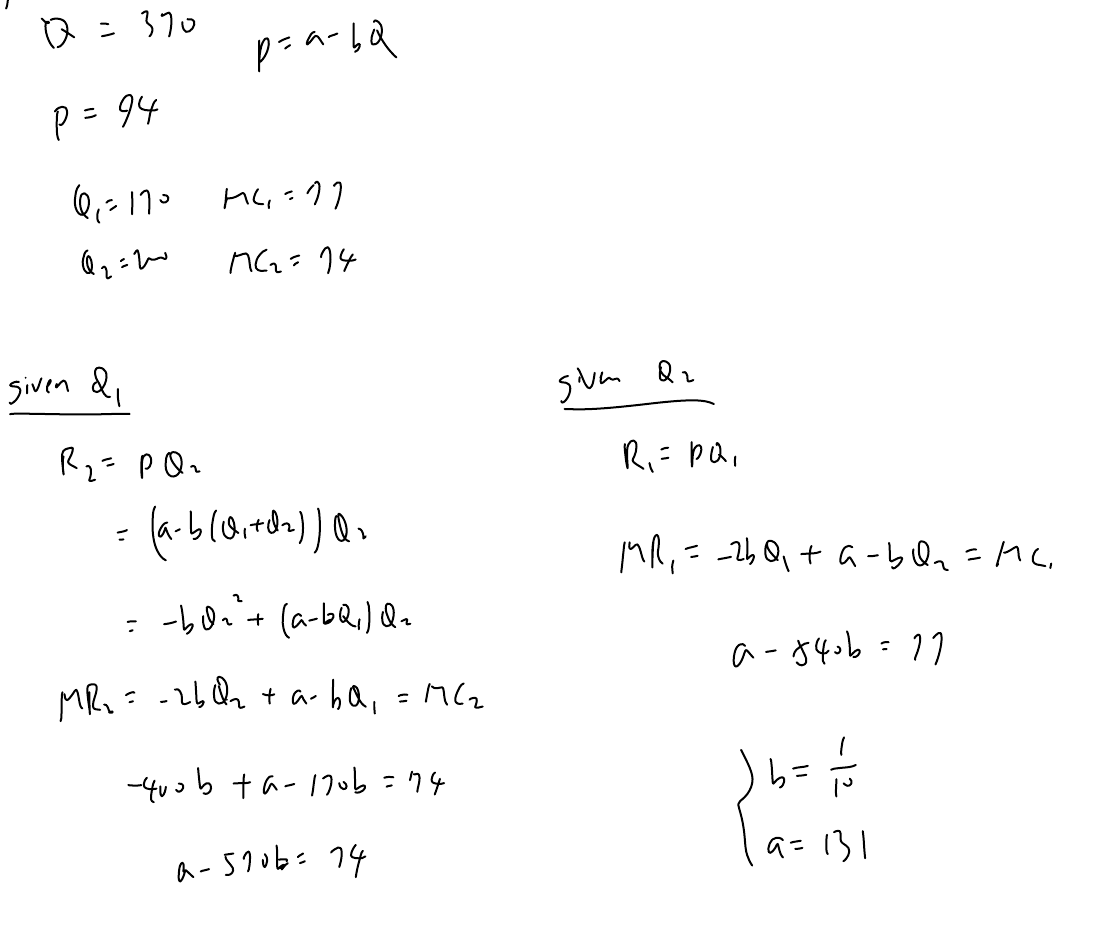 Q = 370 p = a - bQ
p = 94
Q₁ = 170 MC₁ = 77
Q₂ = 200 MC₂ = 74
given Q₁
R₂ = pQ₂
= (a - b(Q₁ + Q₂))Q₂
= -bQ₂² + (a - bQ₁)Q₂
MR₂ = -2bQ₂ + a - bQ₁ = MC₂
-400b + a - 170b = 74
a - 570b = 74
given Q₂
R₁ = pQ₁
MR₁ = -2bQ₁ + a - bQ₂ = MC₁
a - 540b = 77
b = 1/10
a = 131